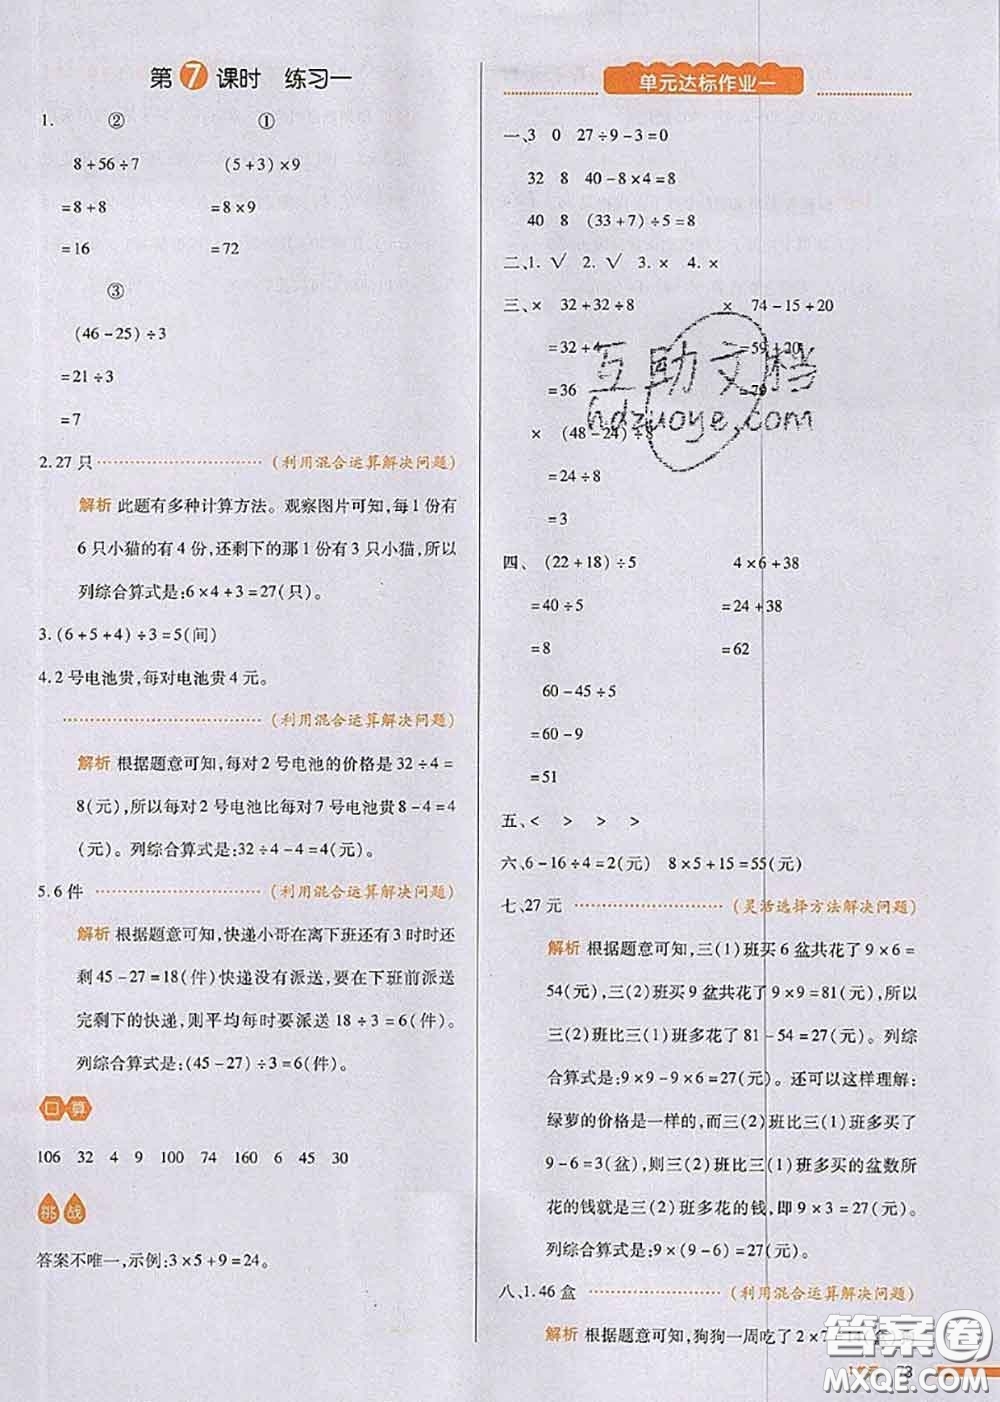 第7课时 练习一
1. ② ①
8+56÷7 (5+3)×9
=8+8 =8×9
=16 =72
③
(46-25)÷3
=21÷3
=7
2.27只 (利用混合运算解决问题)
解析 此题有多种计算方法。观察图片可知,每1份有
6只小猫的有4份,还剩下的那1份有3只小猫,所以
列综合算式是:6×4+3=27(只)。
3.(6+5+4)÷3=5(间)
4.2号电池贵,每对电池贵4元。
(利用混合运算解决问题)
解析 根据题意可知,每对2号电池的价格是32÷4=
8(元),所以每对2号电池比每对7号电池贵8-4=4
(元)。列综合算式是:32÷4-4=4(元)。
5.6件 (利用混合运算解决问题)
解析 根据题意可知,快递小哥在离下班还有3时时还
剩45-27=18(件)快递没有派送,要在下班前派送
完剩下的快递,则平均每时要派送18÷3=6(件)。
列综合算式是:(45-27)÷3=6(件)。
口算
106 32 4 9 100 74 160 6 45 30
挑战
答案不唯一,示例:3×5+9=24。
单元达标作业一
一、3 0 27÷9-3=0
32 8 40-8×4=8
40 8 (33+7)÷5=8
二、1.√ 2.√ 3.× 4.×
三、× 32+32÷8 × 74-15+20
=32+4 =59+20
=36 =79
× (48-24)÷8
=24÷8
=3
四、(22+18)÷5 4×6+38
=40÷5 =24+38
=8 =62
60-45÷5
=60-9
=51
五、< > > >
六、6-16÷4=2(元) 8×5+15=55(元)
七、27元 (灵活选择方法解决问题)
解析 根据题意可知,三(1)班买6盆共花了9×6=
54(元),三(2)班买9盆共花了9×9=81(元),所以
三(2)班比三(1)班多花了81-54=27(元)。列综
合算式是:9×9-9×6=27(元)。还可以这样理解:
绿萝的价格是一样的,而三(2)班比三(1)班多买了
9-6=3(盆),则三(2)班比三(1)班多买的盆数所
花的钱就是三(2)班多花的钱,即9×3=27(元)。
列综合算式是:9×(9-6)=27(元)。
八、1.46盒 (利用混合运算解决问题)
解析 根据题意可知,狗狗一周吃了2×7
互助文档
hdzuoye.com
答案圈
MXQE.COM